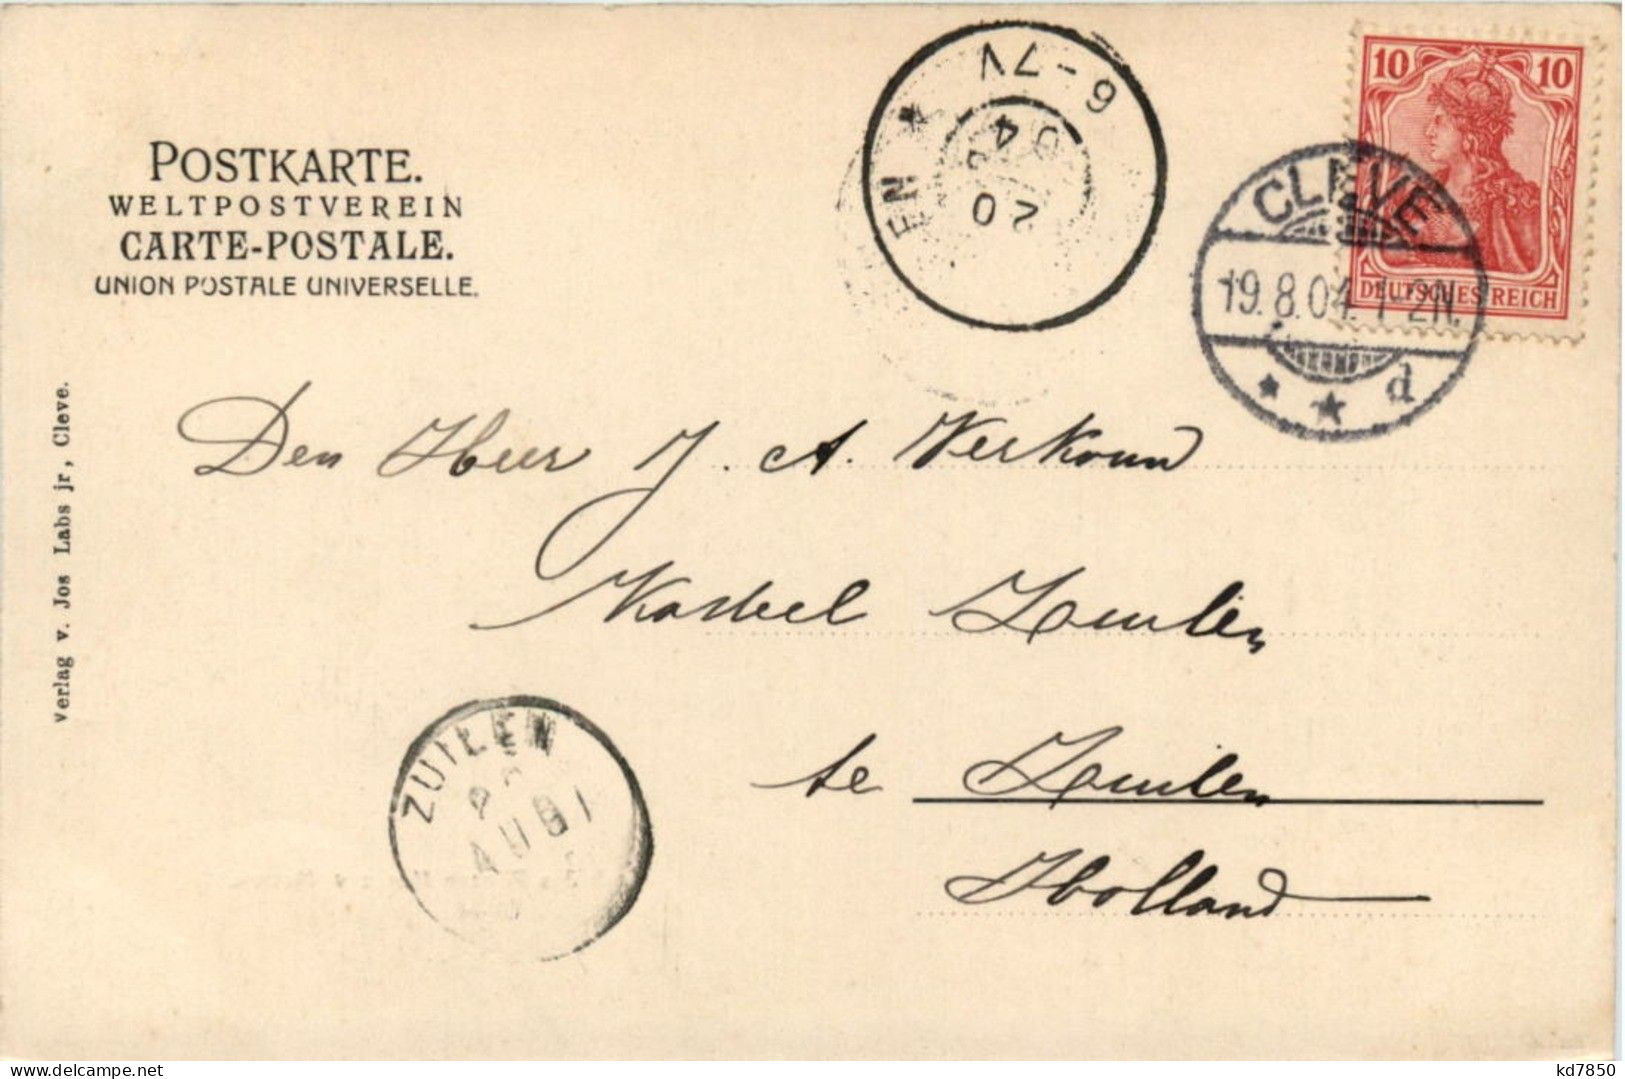 POSTKARTE.
WELTPOSTVEREIN
CARTE-POSTALE.
UNION POSTALE UNIVERSELLE.
10 10
DEUTSCHES REICH
CLEVE
19.8.04. 1-2N.
* * d
6-7V
04
20
EN *
Den Heer J. A. Verkouw
Kasteel Zuilen
te Zuilen
Holland
ZUILEN
AUG
Verlag v. Jos Labs jr, Cleve.
kd7850